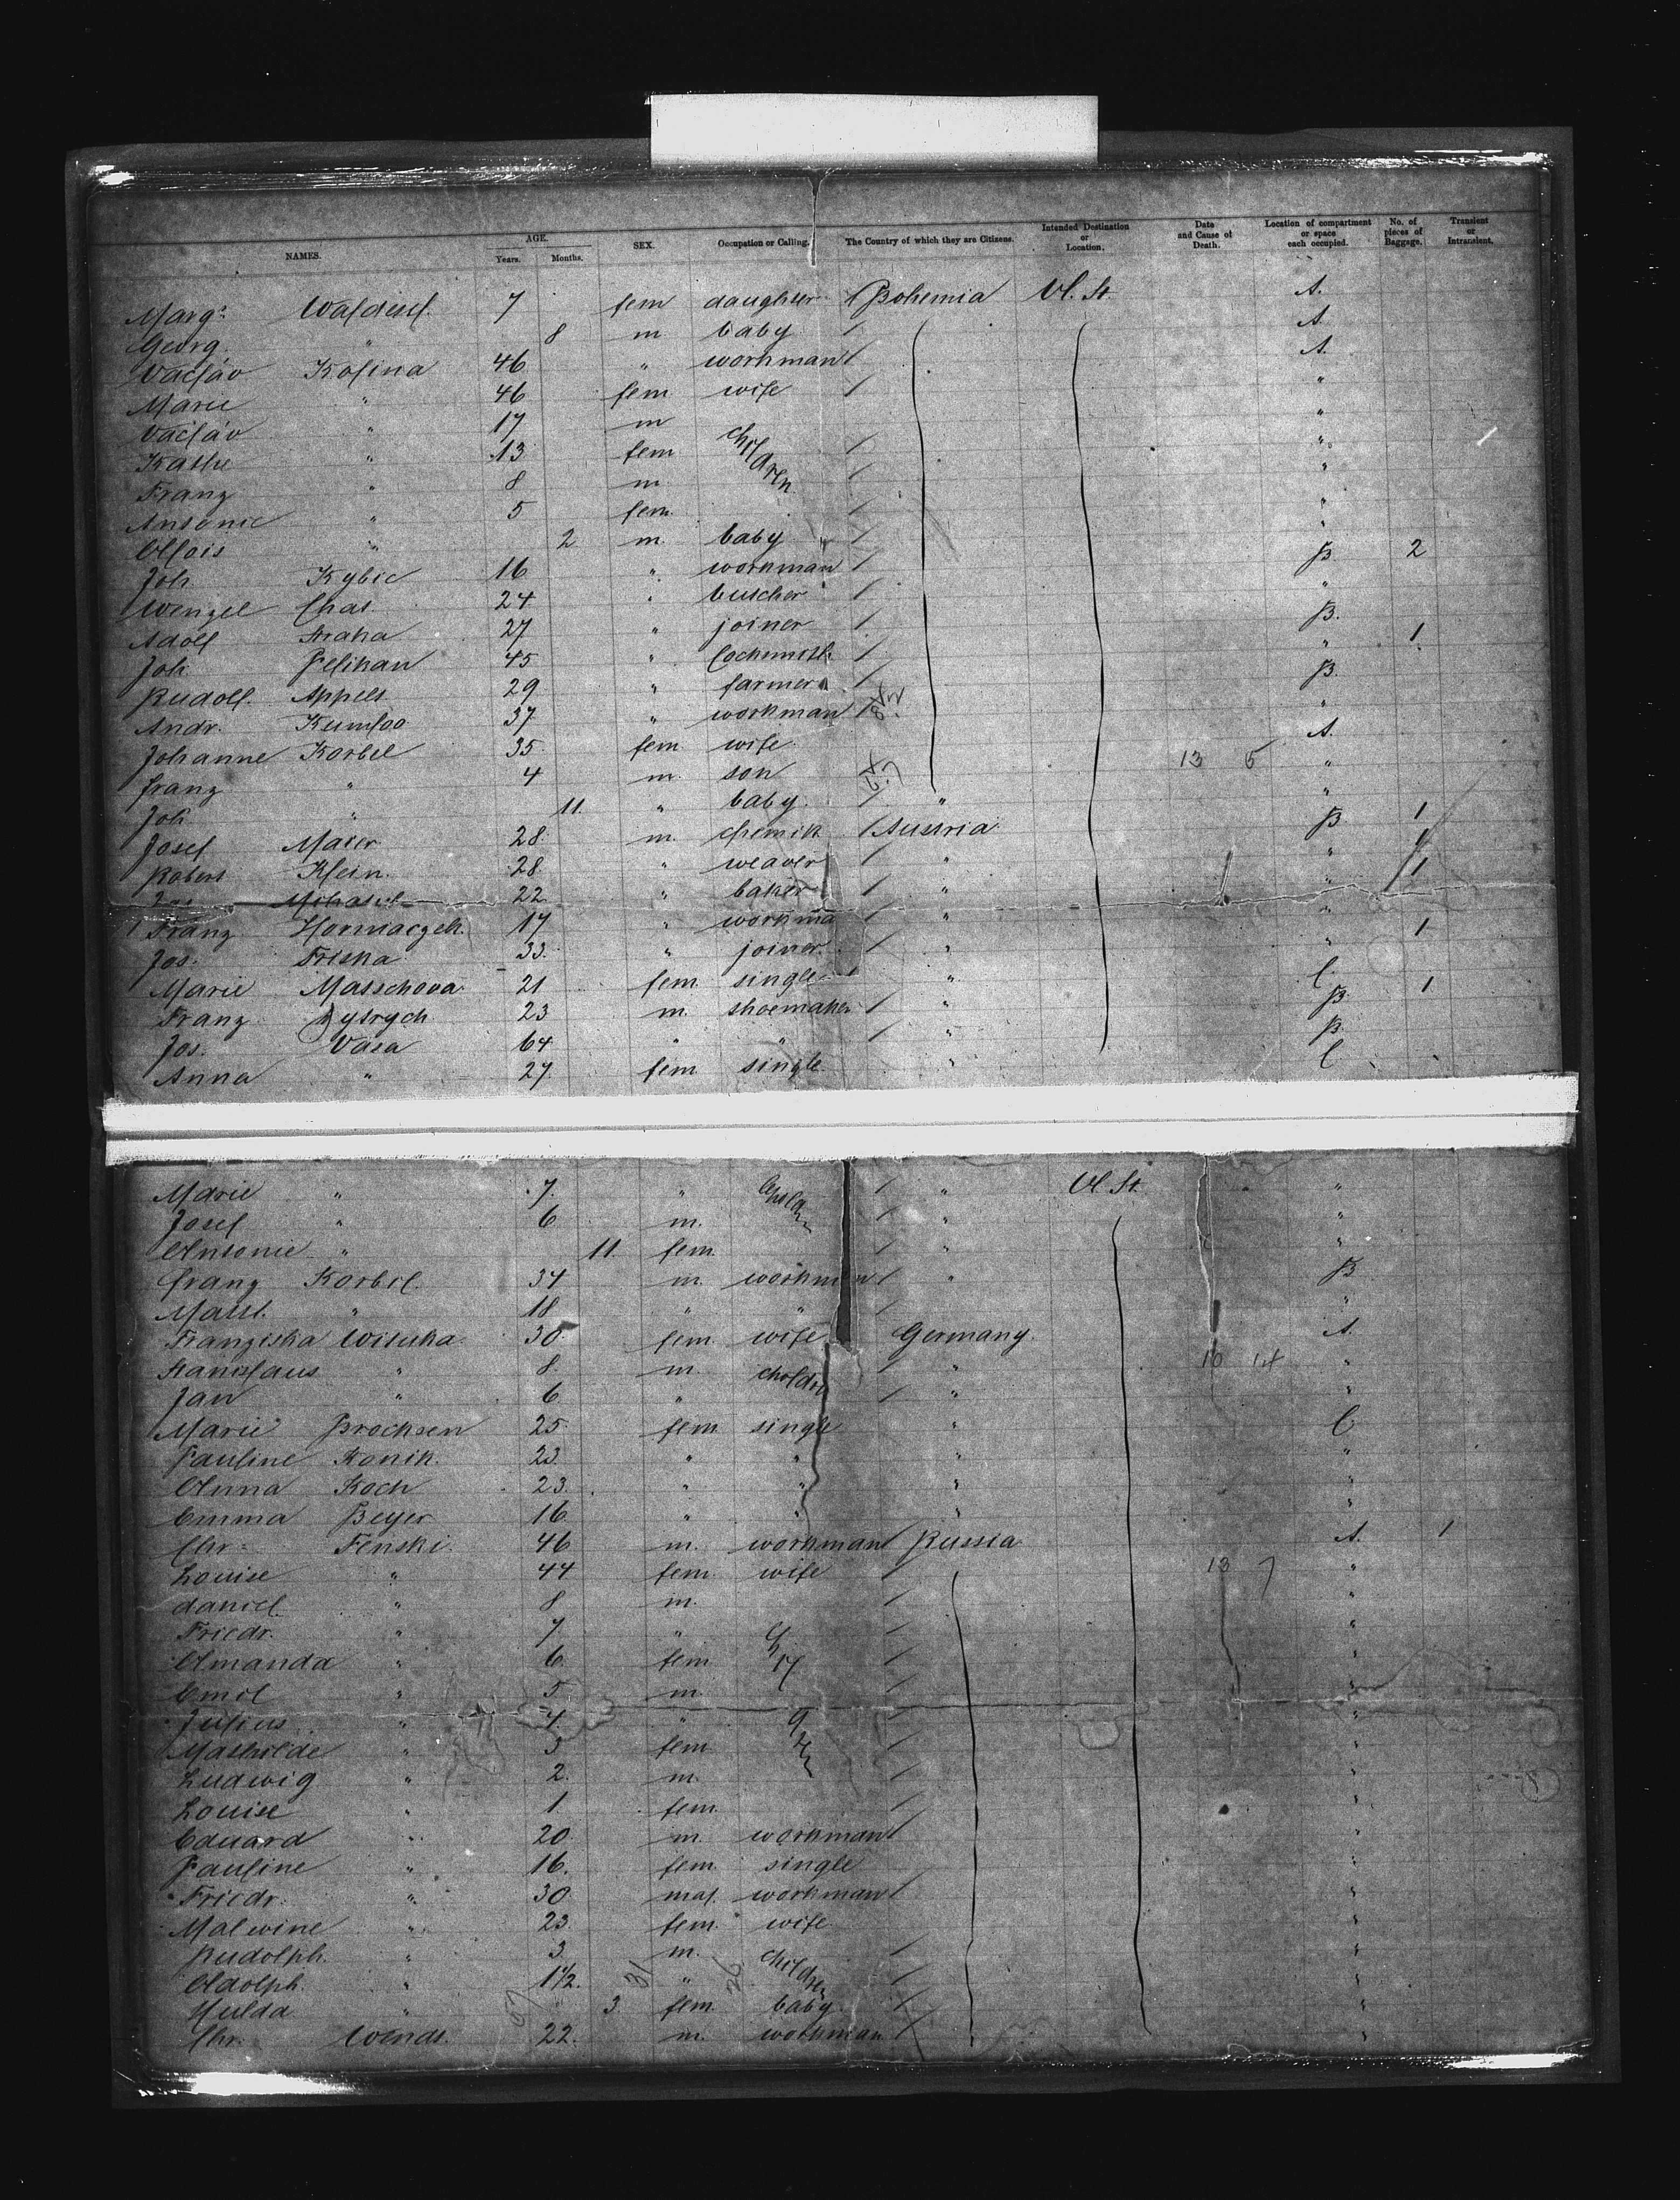 NAMES. AGE. Years. Months. SEX. Occupation or Calling. The Country of which they are Citizens. Intended Destination or Location. Date and Cause of Death. Location of compartment or space each occupied. No. of pieces of Baggage. Transient or Intransient.
Marg. 7 fem daughter Bohemia U. St. A.
Georg. " 8 m baby A
Vaclav Kolina 46 " workman A.
Marie " 46 fem wife "
Vaclav " 17 m "
Kathe " 13 fem children "
Franz " 8 m "
Antonie " 5 fem "
Alois " 2 m. baby "
Joh. Kybic 16 " workman B. 2
Wenzel Chat 24 " butcher "
Adolf Straka 27 " joiner B.
Joh. Pelikan 45 " locksmith " 1
Rudolf. Appelt 29 " farmer B.
Andr. 37 " workman "
Johanne Korbel 35 fem wife A.
Franz " 4 m. son 13 5 "
Joh " 11. " baby " "
Josef Maier 28 m. chemik Austria B 1
Robert Klein. 28 " weaver " " 1
22 " baker " " 1
Franz Hormaczek. 17 " workma " "
Jos. Triska 33. " joiner. " " 1
Marie Matschova 21 fem single " C.
Franz Bystrych 23 m. shoemaker " B. 1
Jos. Vasa 64 " " " B.
Anna " 27 fem single " C
Marie " 7. " childr " U. St. "
Josef " 6 m. " "
Antonie " 11. fem. " "
Franz Korbel. 34 m. workman " B
Matt. " 18 " " "
Franziska Wituka 30 fem wife Germany A.
Stanislaus " 8 m. childre " 10 14 "
Jan " 6 " " "
Marie Brochsen 25 fem single " C
Pauline Konik. 23 " " " "
Anna Koch 23. " " " "
Emma Beyer 16 " " " "
Chr. Fenski 46 m. workman Russia A. 1
Louise " 44 fem. wife 13 7 "
Daniel " 8 m. "
Friedr. " 7 " "
Amanda " 6 fem "
Emil " 5 m. "
Julius " 4. " "
Mathilde " 3 fem "
Ludwig " 2. m. "
Louise " 1. fem. "
Eduard " 20 m. workman "
Pauline " 16. fem. single "
Friedr. " 30 mal. workman "
Malwine " 23 fem. wife "
Rudolph. " 3 m. children "
Adolph. " 1 1/2. " "
Hulda " 3 fem. baby "
Chr. Wendt. 22. m. workman "